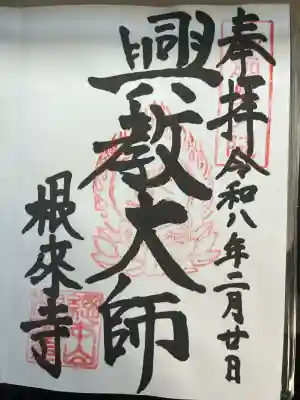 奉拝 令和八年二月廿日
興教大師
根来寺